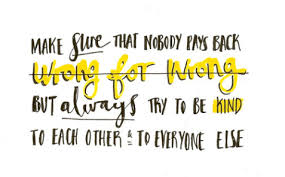 MAKE Sure THAT NOBODY PAYS BACK
Wrong for Wrong
BUT always TRY TO BE KIND
TO EACH OTHER & TO EVERYONE ELSE